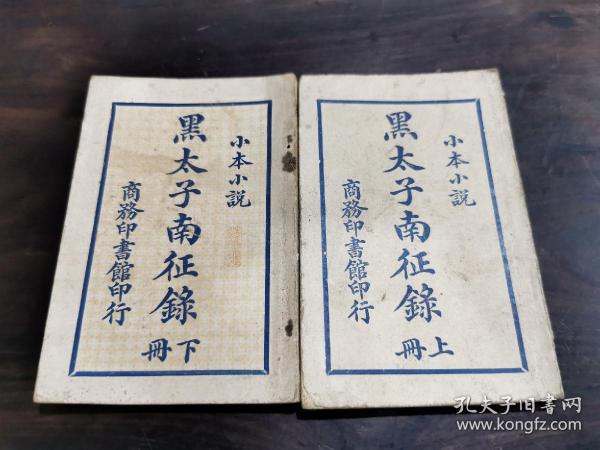 小本小説
黑太子南征錄
上冊
商務印書館印行
小本小説
黑太子南征錄
下冊
商務印書館印行
孔夫子旧書网
www.kongfz.com